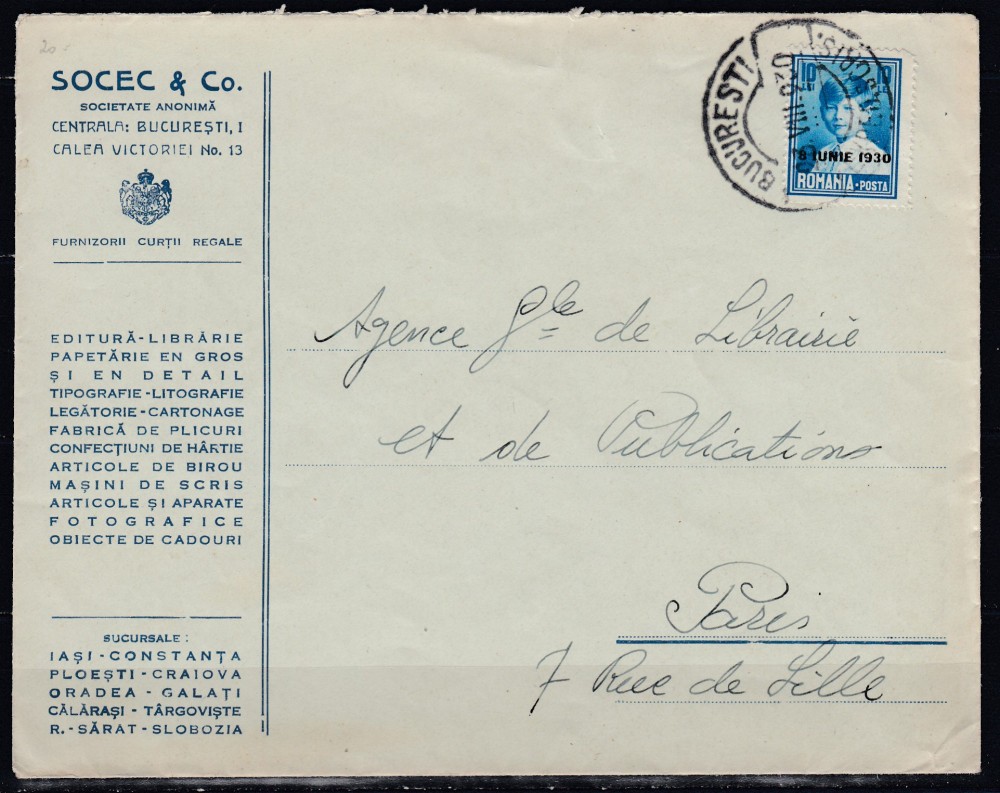 20
SOCEC & Co.
SOCIETATE ANONIMĂ
CENTRALA: BUCUREȘTI, I
CALEA VICTORIEI No. 13
FURNIZORII CURȚII REGALE
EDITURĂ-LIBRĂRIE
PAPETĂRIE EN GROS
ȘI EN DETAIL
TIPOGRAFIE-LITOGRAFIE
LEGĂTORIE-CARTONAGE
FABRICĂ DE PLICURI
CONFECȚIUNI DE HÂRTIE
ARTICOLE DE BIROU
MAȘINI DE SCRIS
ARTICOLE ȘI APARATE
FOTOGRAFICE
OBIECTE DE CADOURI
SUCURSALE:
IAȘI-CONSTANȚA
PLOEȘTI-CRAIOVA
ORADEA - GALAȚI
CĂLĂRAȘI - TÂRGOVIȘTE
R.-SĂRAT-SLOBOZIA
BUCUREȘTI
10
8 IUNIE 1930
ROMANIA·POSTA
Agence Gle de Librairie
et de Publications
Paris
7 Rue de Lille